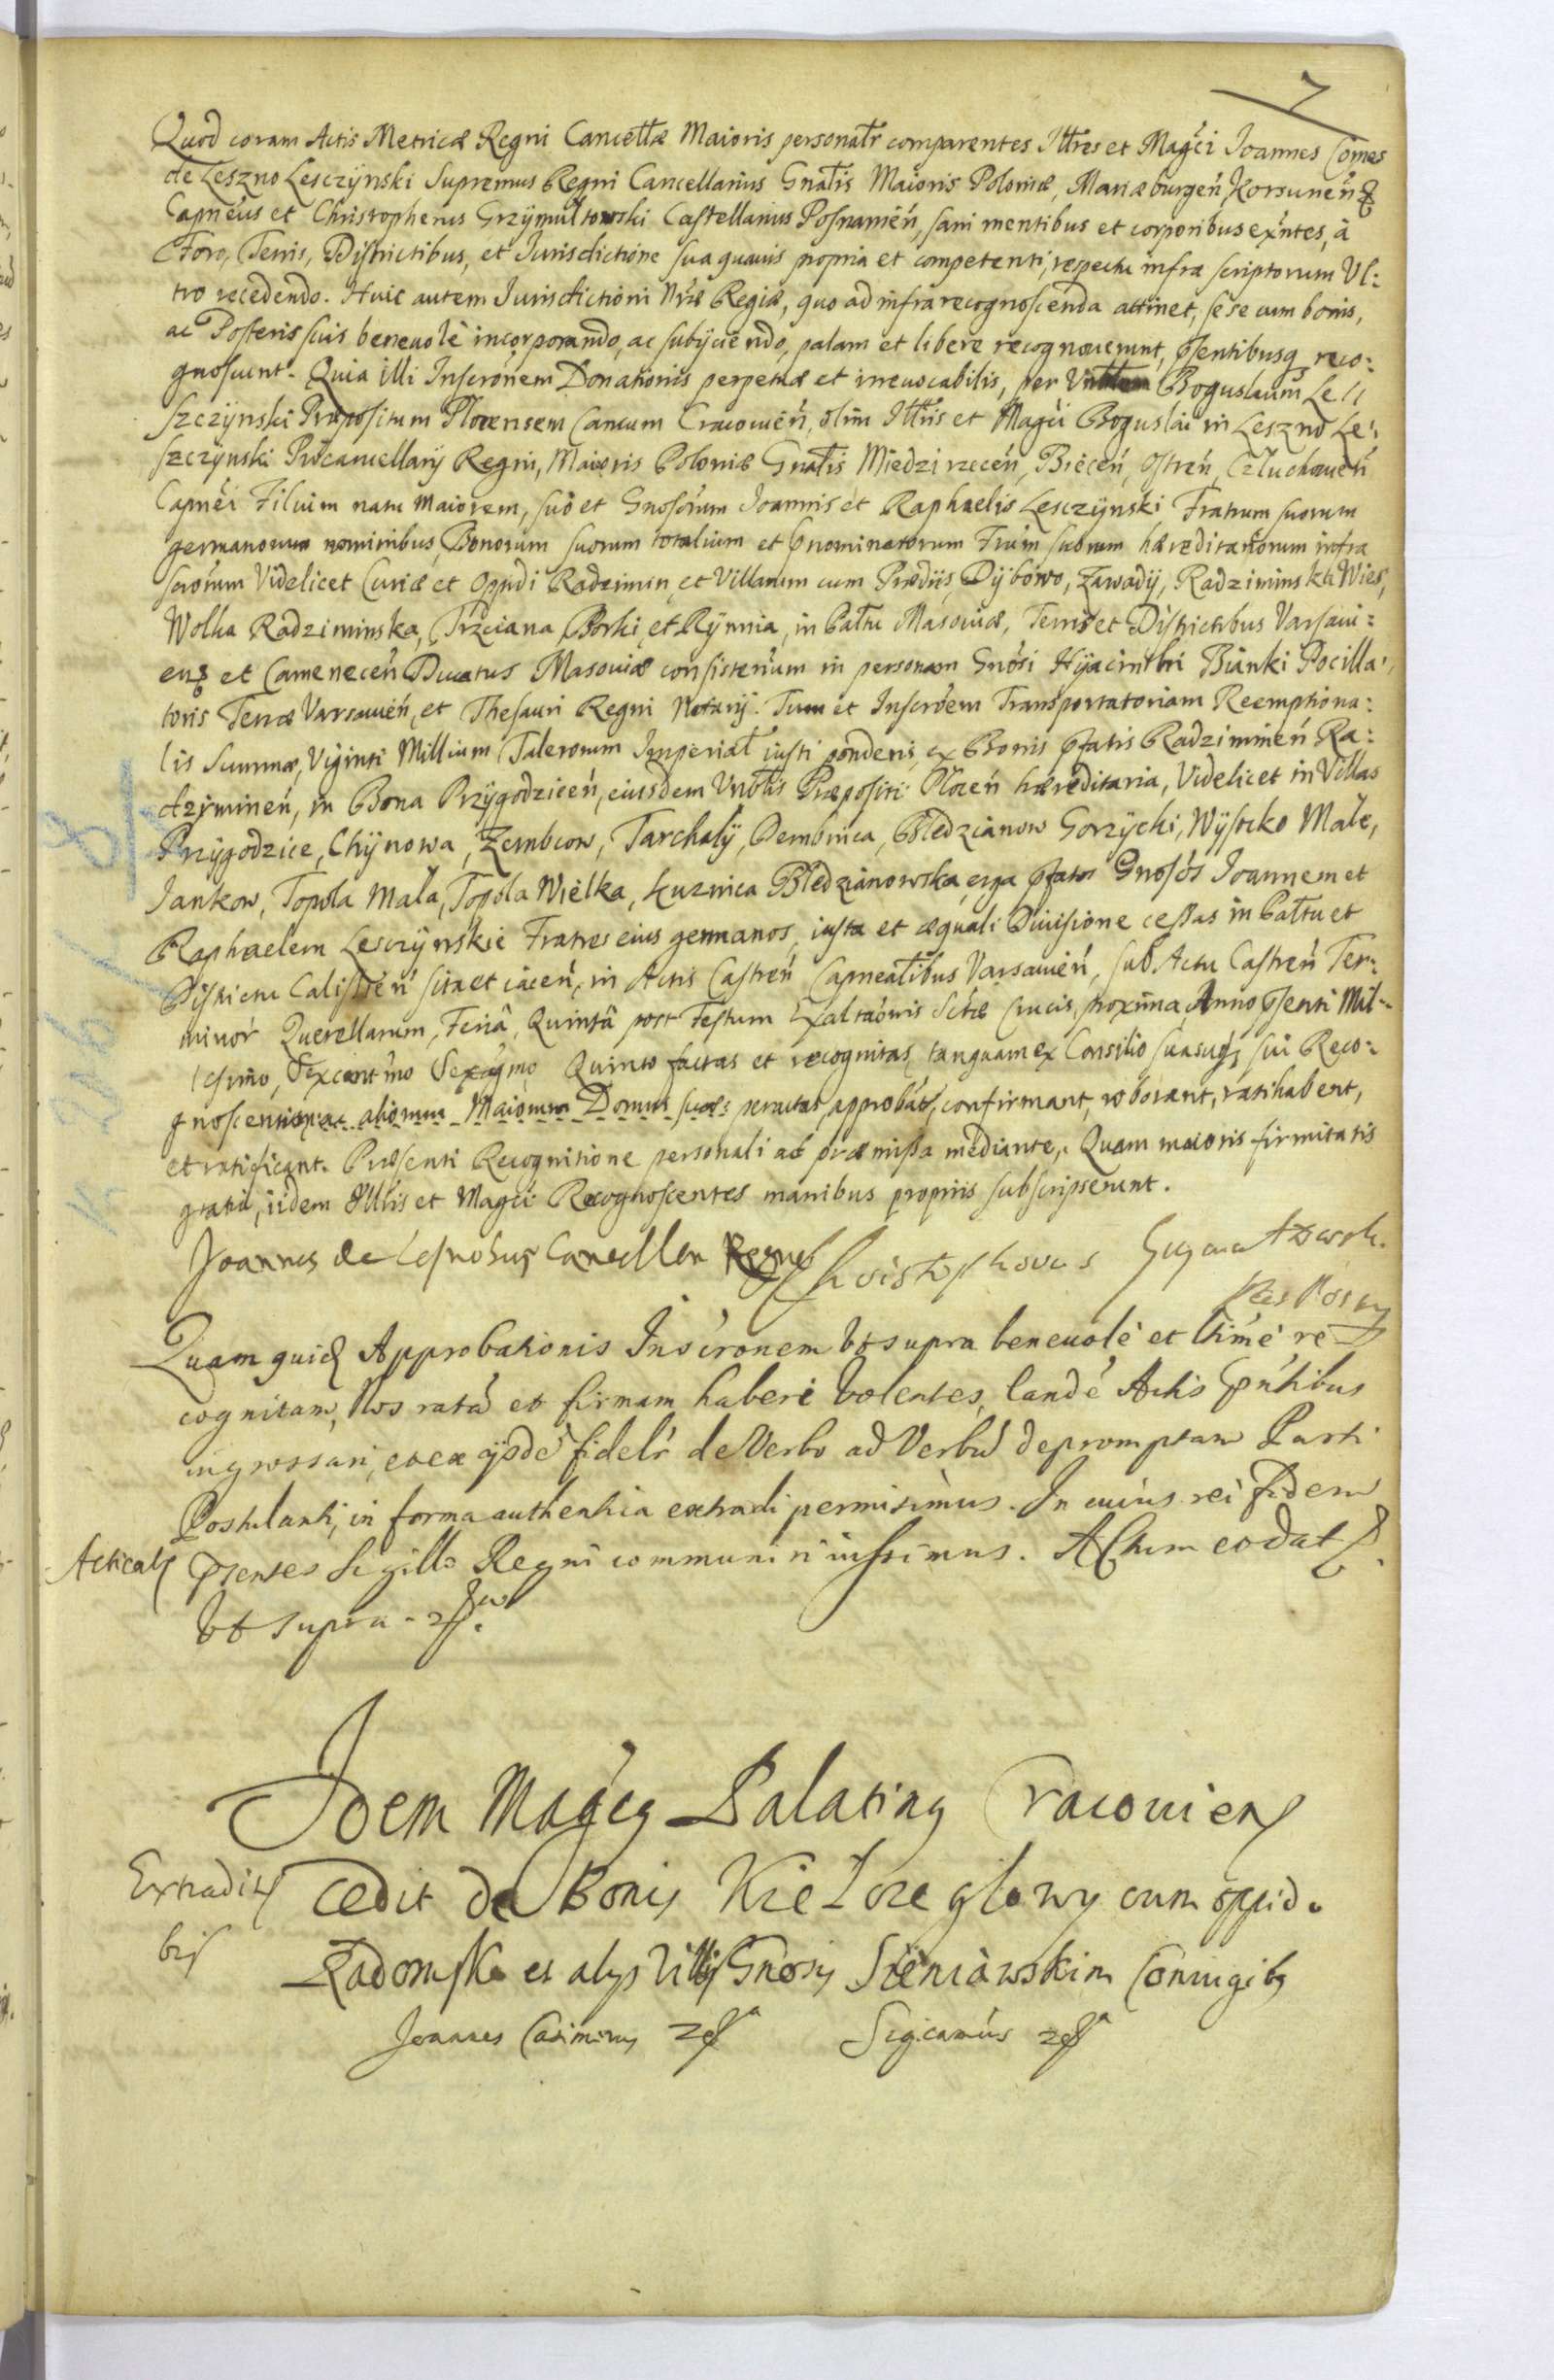 7
Quod coram Actis Metricæ Regni Cancellæ Maioris personalr comparentes Illres et Magci Joannes Comes
de Leszno Lesczÿnski Supremus Regni Cancellarius Gnalis Maioris Poloniæ, Mariæburgeń Korsuneń
Capneus et Christopherus Grzÿmułtowski Castellanus Posnanień, sani mentibus et corporibus exńtes, à
Foro, Terris, Districtibus, et Jurisdictione sua quavis propria et competenti, respectu infra scriptorum Ul:
tro recedendo. Huic autem Jurisdictioni Nræ Regiæ, quo ad infra recognoscenda attinet, sese cum bonis,
ac Posteris suis benevolè incorporando, ac subÿciendo, palam et libere recognoverunt, psentibusq reco:
gnoscunt. Quia illi Inscronem Donationis perpetuæ et irrevocabilis, per Boguslaum Le
szczÿnski Præpositum Plocensem Cancum Cracovień, olim Illris et Magci Boguslai in Leszno Le:
szczÿnski Procancellarÿ Regni, Maioris Poloniæ Gnalis Miedzirzeceń, Bieceń, Ostreń, Człuchoveń
Capnei Filium natu maiorem, suo et Gnosorum Joannis et Raphaelis Lesczÿnski Fratrum suorum
germanorum nominibus, Bonorum suorum totalium et pnominatorum Frum suorum hæreditariorum infra
scrorum Videlicet Curiæ et Oppidi Radzimin, et Villarum cum Prædiis, Dÿbowo, Zawadÿ, Radziminska Wies,
Wolka Radziminska, Trzciana Borki et Rÿnnia, in Paltu Masoviæ, Terris et Districtibus Varsavi:
ens et Cameneceń Ducatus Masoviæ consistenium in personam Gnosi Hÿacinthi Bianki Pocilla:
toris Terræ Varsavień, et Thesauri Regni Notarÿ. Tum et Inscroem Transportatoriam Reemptiona:
lis Summæ, Viginti Millium Talerorum Imperial iusti ponderis, ex Bonis pfatis Radziminen Ra:
dzÿmineń, in Bona Przÿgodziceń, eiusdem Vrblis Præpositi Ploceń hæreditaria, Videlicet in Villas
Przÿgodzice, Chÿnowa, Zembcow, Tarchalÿ, Dembnica, Bledzianow Gorzÿcki, Wÿsocko Małe,
Jankow, Topola Mala, Topola Wielka, Kuznica Bledzianowska, erga pfatos Gnosos Joannem et
Raphaelem Lesczÿnskie Fratres eius germanos, iusta et æquali Divisione cessas in Paltu et
Districtu Calissień sita et iaceń, in Actis Castreń Capnealibus Varsavień, sub Actu Castreń Ter:
minor Querellarum, Feriâ Quintâ post Festum Exaltaonis Sctæ Crucis, proxima Anno psenti Mil:
lesimo, Sexcentmo Sexagmo Quinto factas et recognitas, tanquam ex Consilio suasuq sui Reco:
gnoscentium ac aliorum Maiorum Domus suæ peractas, approbat, confirmant, roborant, ratihabent,
et ratificant. Præsenti Recognitione personali ad præmissa mediante. Quam maioris firmitatis
gratia, iidem Illris et Magci Recognoscentes manibus propriis subscripserunt.
Joannes de Lesno Cancellar Regni Christophorus Grzymułtowsk.
Cas Posn
Quam quid Approbationis Inscronem vt supra benevolè et lime re
cognitam, Nos ratā et firmam haberi volentes, eandē Actis pńtibus
ingrossari, et ex ijsdē fidelr de Verbo ad Verbū depromptam Parti
Postulanti, in forma authentica extradi permisimus. In cuius rei fidem
Acticat psentes Sigillo Regni communiri iussimus. Actum et dat
vt supra
Idem Magcq Palatinq Cracouien
Extradit cedit de Bonis Krzetoze glowy cum oppido
bis
Radomsko et alijs Villis Gnosis Sieniawskim Coniugibq
Joannes Casimirus Sigcamus